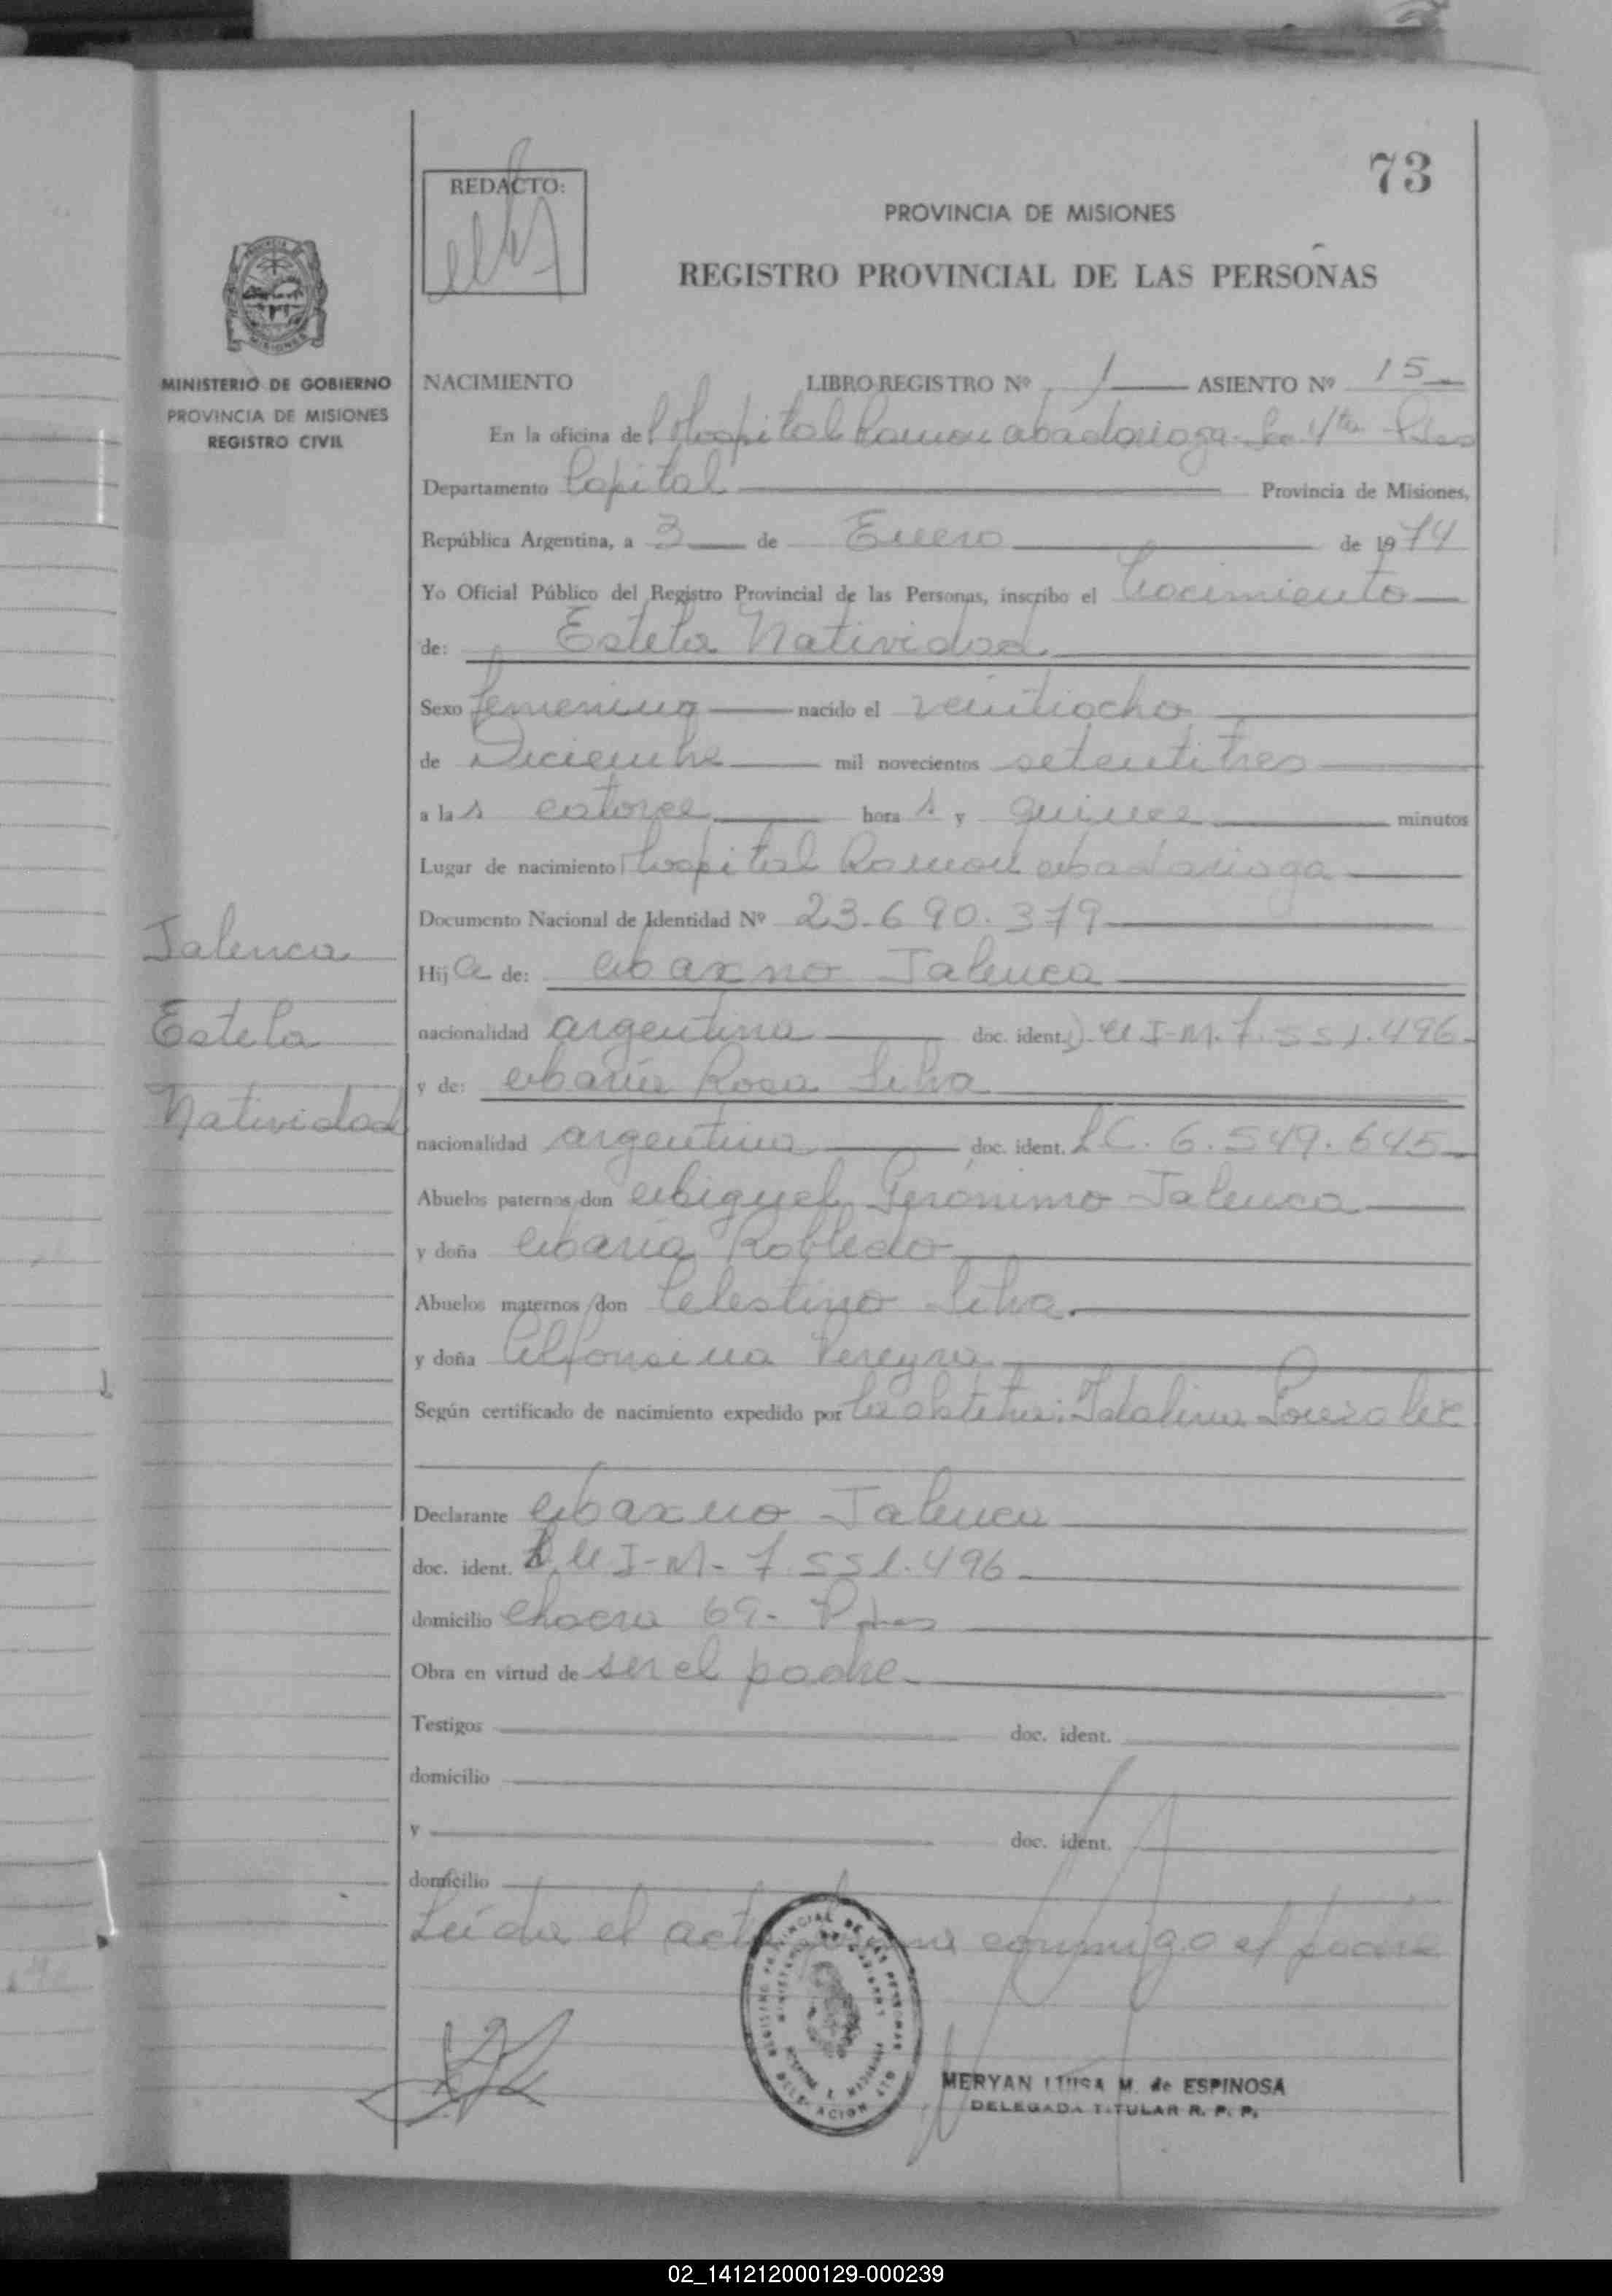 73
REDACTO:
PROVINCIA DE MISIONES
REGISTRO PROVINCIAL DE LAS PERSONAS
MINISTERIO DE GOBIERNO
PROVINCIA DE MISIONES
REGISTRO CIVIL
NACIMIENTO LIBRO REGISTRO Nº 1 ASIENTO Nº 15
En la oficina del Hospital Ramon Madariaga
Departamento Capital Provincia de Misiones,
República Argentina, a 3 de Enero de 1974
Yo Oficial Público del Registro Provincial de las Personas, inscribo el Nacimiento
de: Estela Natividad
Sexo femenino nacido el veintiocho
de Diciembre mil novecientos setentitres
a las catorce horas y quince minutos
Lugar de nacimiento Hospital Ramon Madariaga
Documento Nacional de Identidad Nº 23.690.379
Hija de: Maxno Talenca
nacionalidad argentina doc. ident. M.I-M.7.551.496
y de: Maria Rosa Silva
nacionalidad argentina doc. ident. LC. 6.549.645
Abuelos paternos don Miguel Gerónimo Talenca
y doña Maria Robledo
Abuelos maternos don Celestino Silva
y doña Alfonsina Pereyra
Según certificado de nacimiento expedido por la obstetra: Idalina Gonzalez
Talenca
Estela
Natividad
Declarante Maxno Talenca
doc. ident. M I-M- 7.551.496
domicilio Chacra 69- Pdas
Obra en virtud de ser el padre
Testigos doc. ident.
domicilio
y doc. ident.
domicilio
Leida el acta firma conmigo el padre
MERYAN LUISA M. de ESPINOSA
DELEGADA TITULAR R. P. P.
02_141212000129-000239